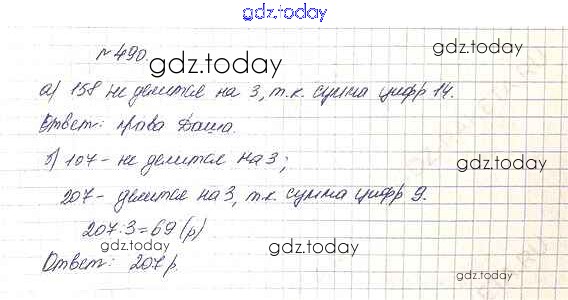 gdz.today
№490.
gdz.today
gdz.today
а) 158 не делится на 3, т.к. сумма цифр 14.
Ответ: права Даша.
gdz.today
б) 107 - не делится на 3;
gdz.today
207 - делится на 3, т.к. сумма цифр 9.
207:3=69 (р)
gdz.today
gdz.today
Ответ: 207 р.
gdz.today